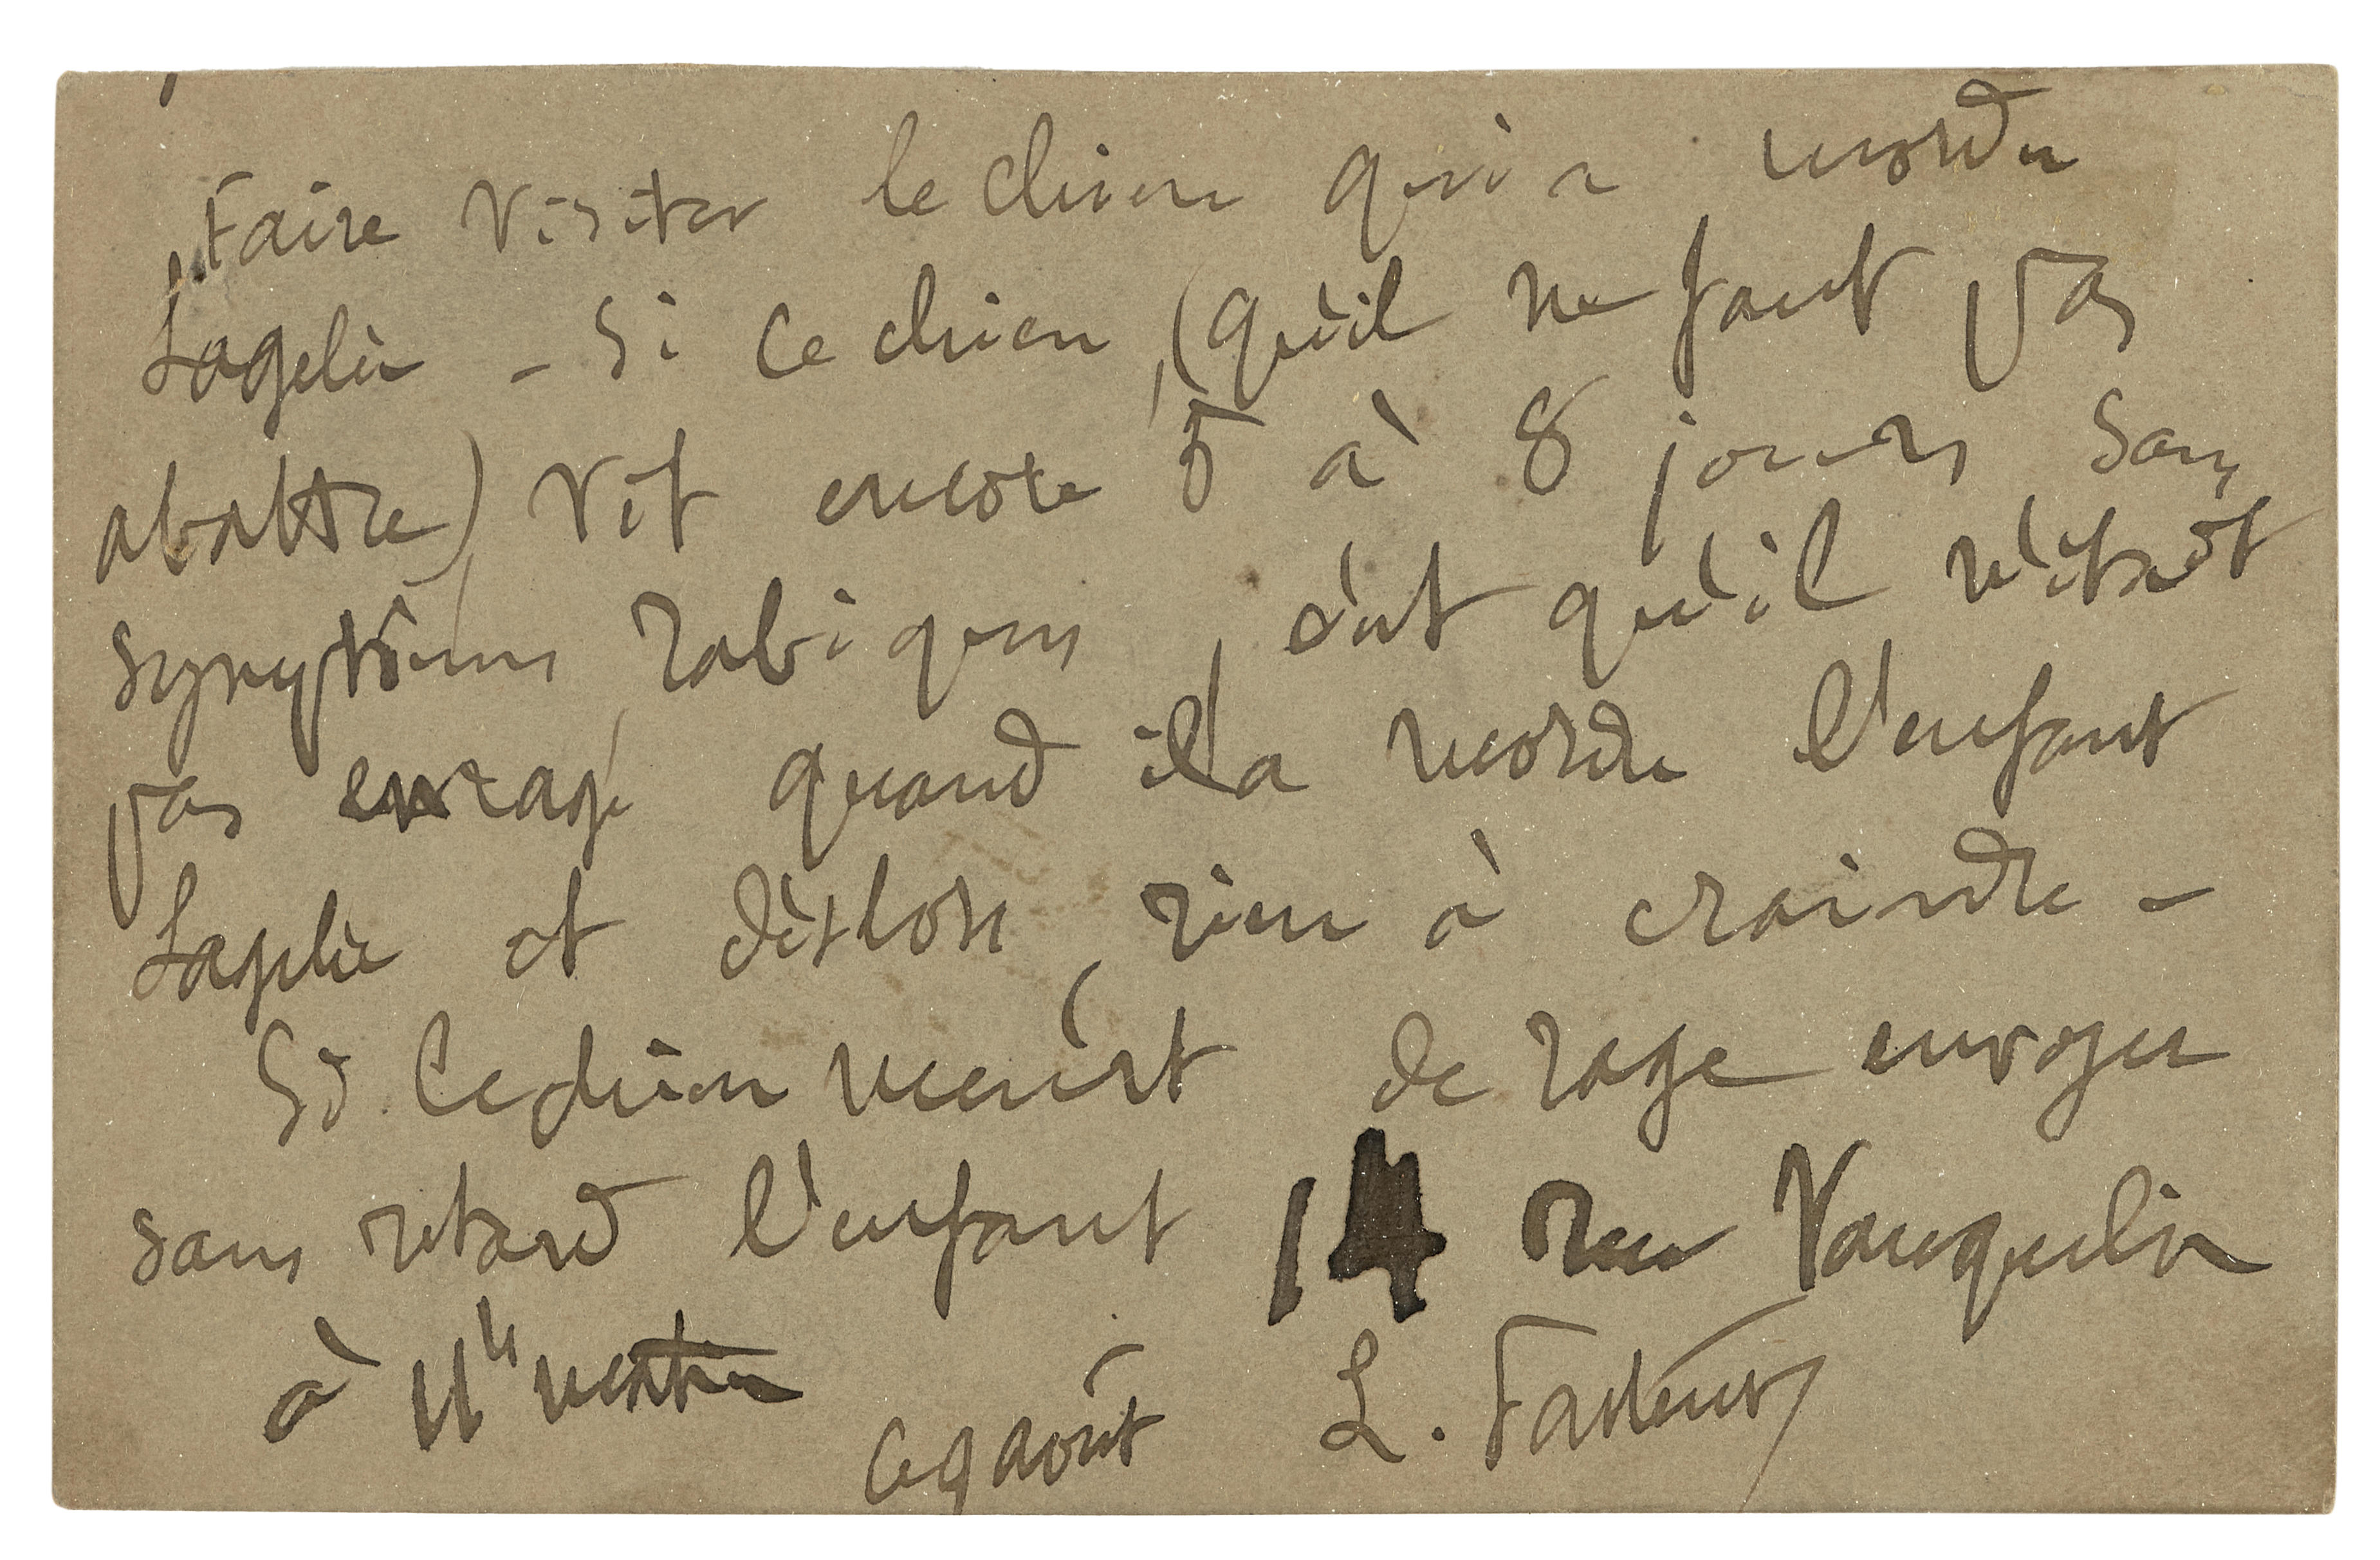 Faire visiter le chien qui a mordu
Lagelée - Si ce chien, (qu'il ne faut pas
abattre) vit encore 5 à 8 jours sans
symptômes rabiques, c'est qu'il n'était
pas enragé quand il a mordu l'enfant
Lagelée et dès lors, rien à craindre -
Si le chien meurt de rage envoyer
sans retard l'enfant 14 rue Vauquelin
à
ce 9 août L. Pasteur